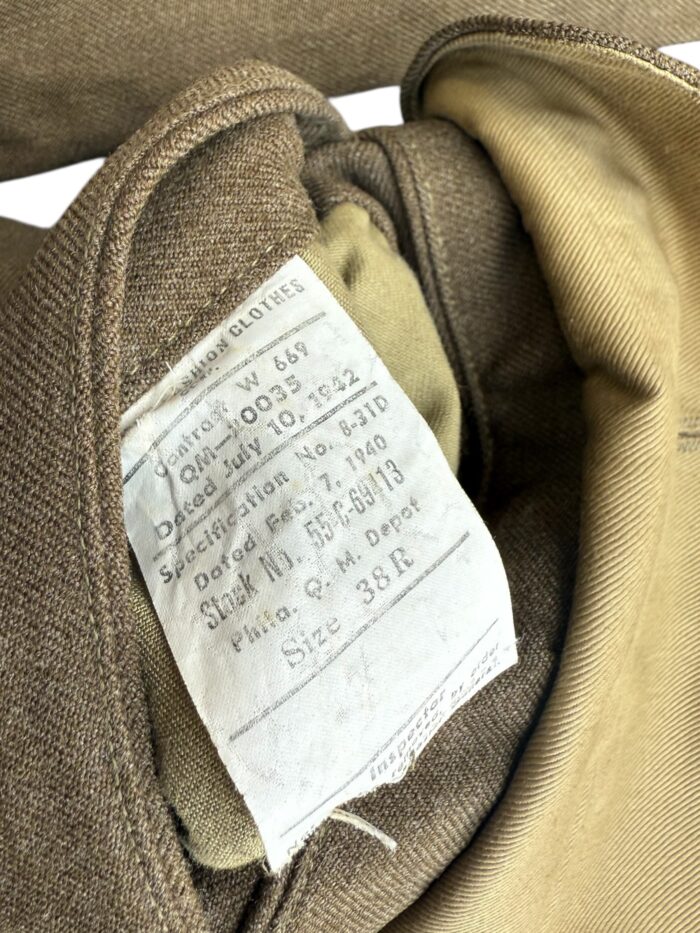 SHION CLOTHES
Contract W 669
QM-
Dated July 10, 1942
Specification No. 8-31D
Dated Feb. 7, 1940
Stock No. 55-C-69413
Phila. Q. M. Depot
Size 38R
Inspector by order
General.